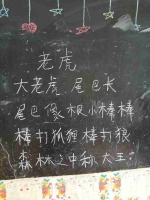 老虎
大老虎 尾巴长
尾巴像根小棒棒
棒打狐狸棒打狼
森林之中称大王